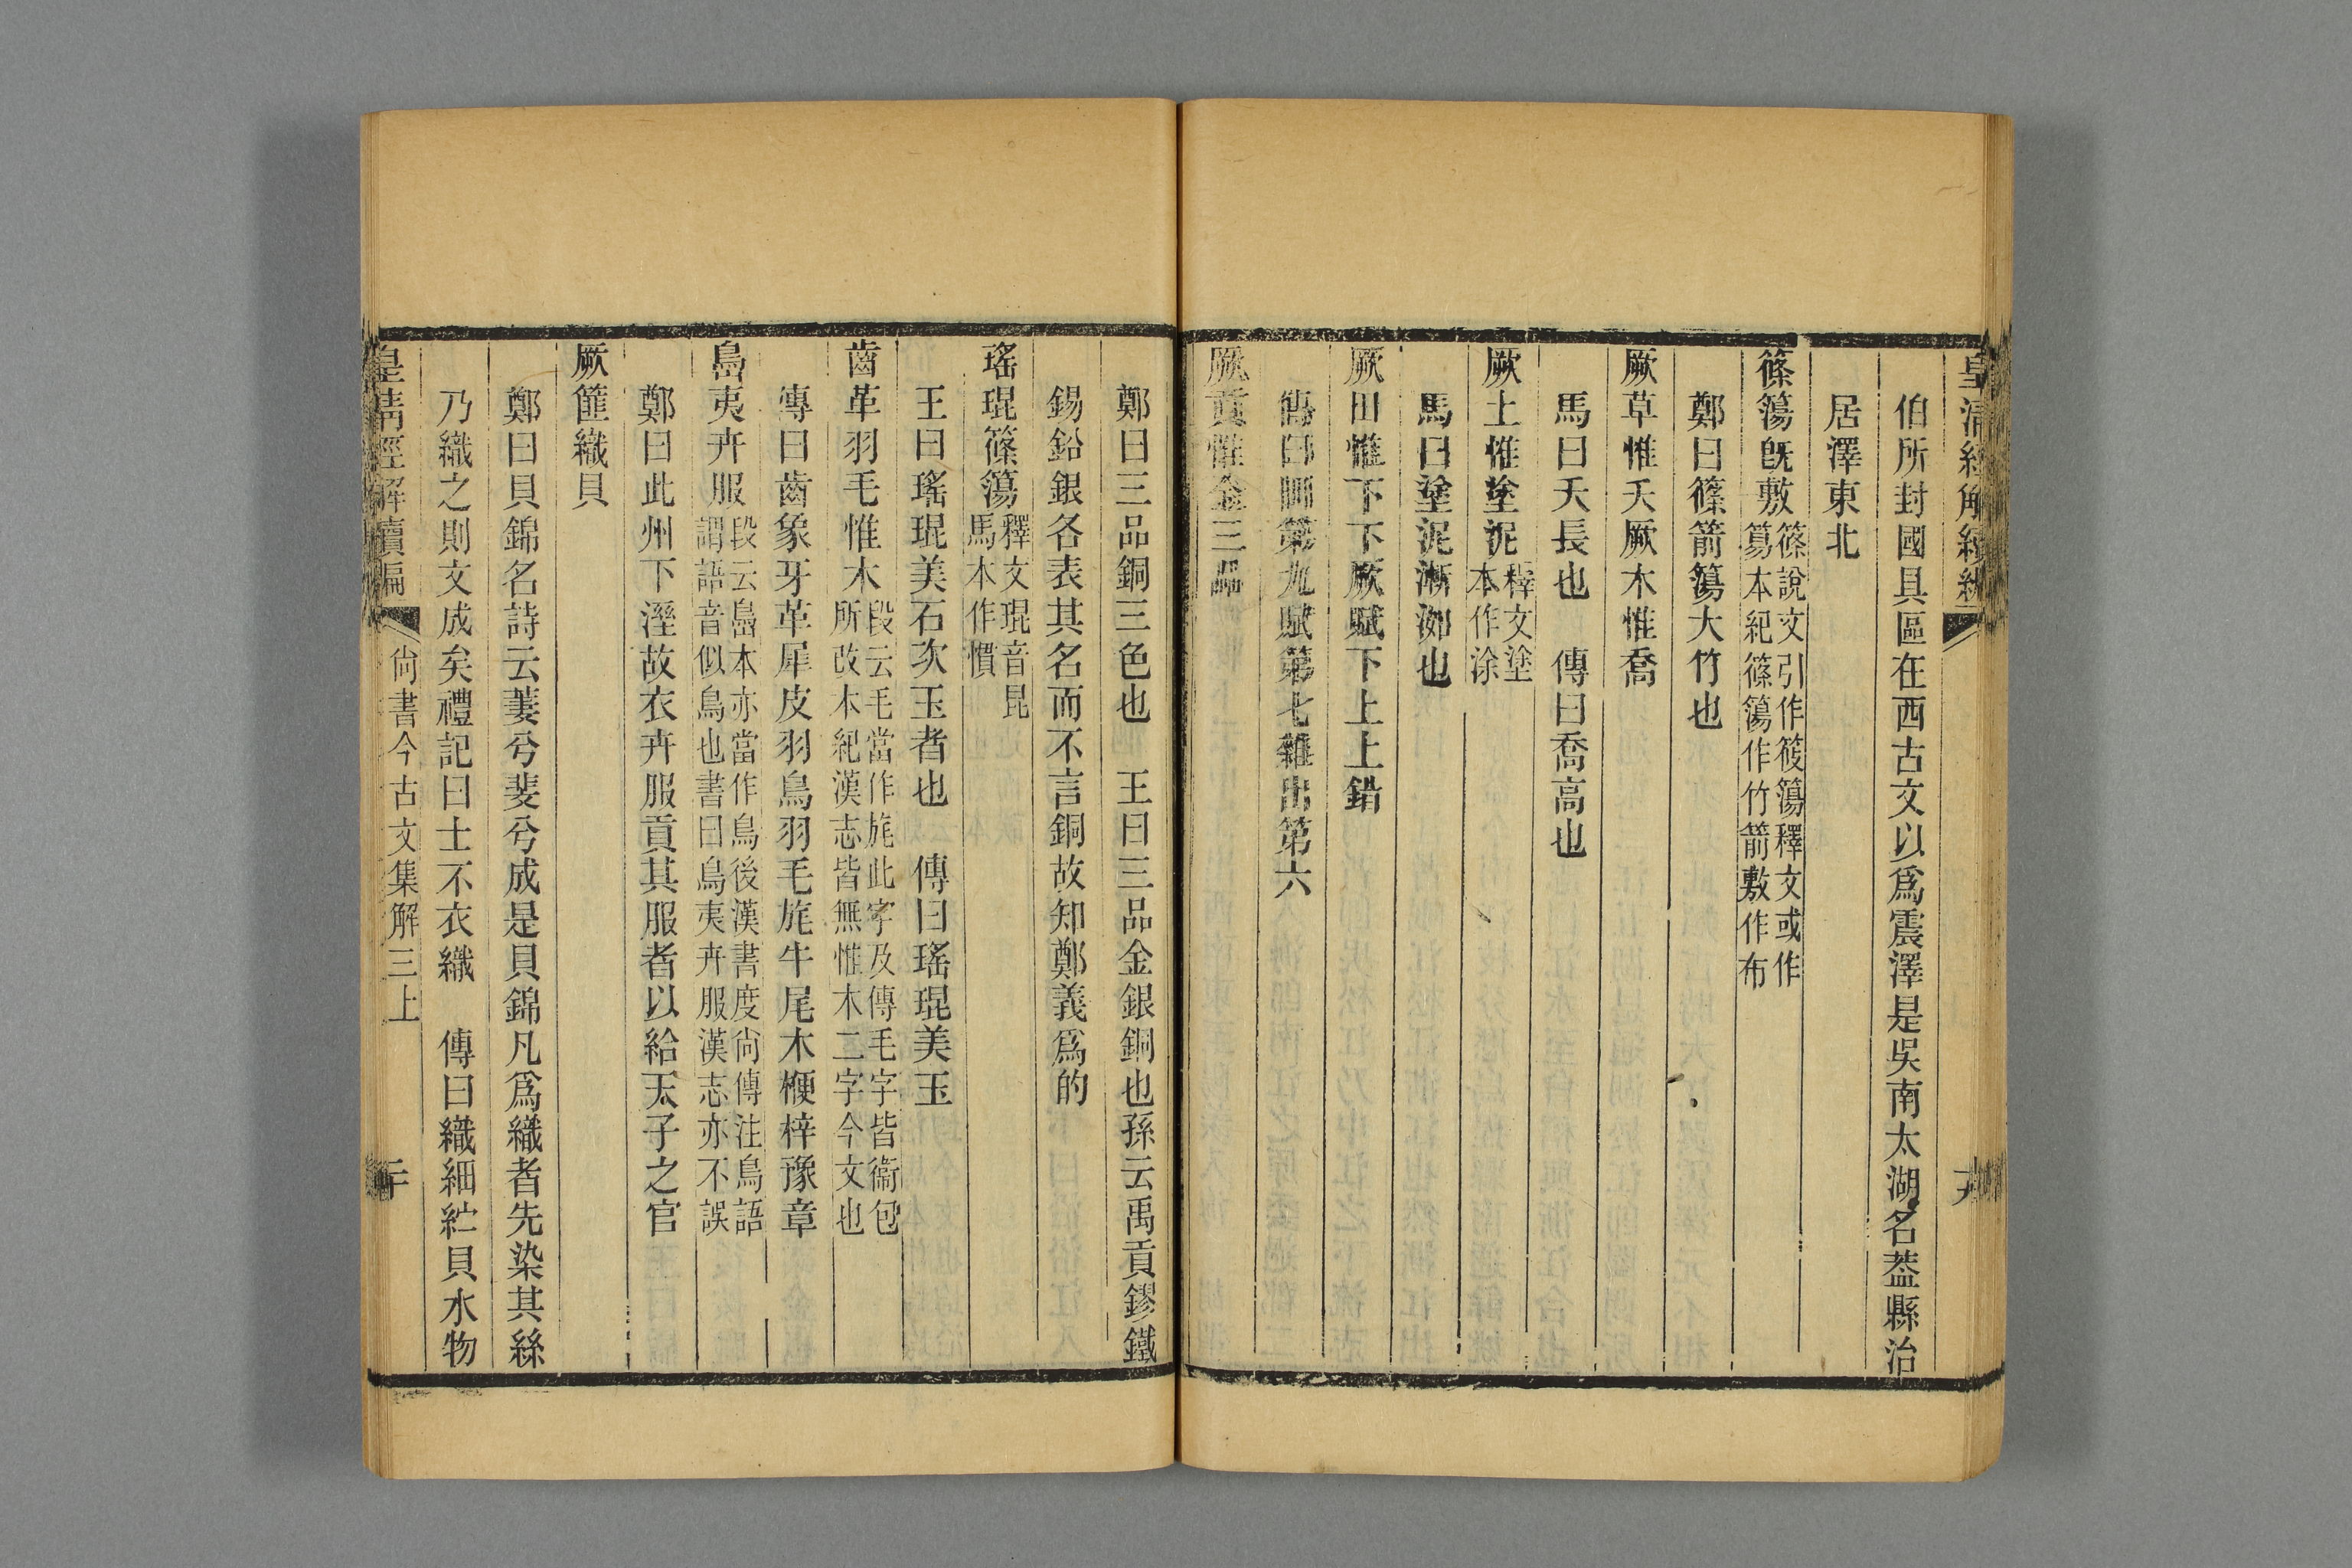 皇清經解續編
伯所封國具區在西古文以爲震澤是吳南太湖名葢縣治
居澤東北
篠簜旣敷篠說文引作筱簜釋文或作
簜本紀篠簜作竹箭敷作布
鄭曰篠箭簜大竹也
厥草惟夭厥木惟喬
馬曰夭長也 傳曰喬高也
厥土惟塗泥釋文塗
本作涂
馬曰塗泥漸洳也
厥田惟下下厥賦下上上錯
傳曰田第九賦第七雜出第六
厥貢惟金三品
鄭曰三品銅三色也 王曰三品金銀銅也孫云禹貢鏐鐵
錫鉛銀各表其名而不言銅故知鄭義爲的
瑤琨篠簜釋文琨音昆
馬本作㻴
王曰瑤琨美石次玉者也 傳曰瑤琨美玉
齒革羽毛惟木段云毛當作旄此字及傳毛字皆衞包
所改本紀漢志皆無惟木二字今文也
傳曰齒象牙革犀皮羽鳥羽毛旄牛尾木楩梓豫章
島夷卉服段云島本亦當作鳥後漢書度尙傳注鳥語
謂語音似鳥也書曰鳥夷卉服漢志亦不誤
鄭曰此州下溼故衣卉服貢其服者以給天子之官
厥篚織貝
鄭曰貝錦名詩云萋兮斐兮成是貝錦凡爲織者先染其絲
乃織之則文成矣禮記曰士不衣織 傳曰織細紵貝水物
皇淸經解續編 尙書今古文集解三上